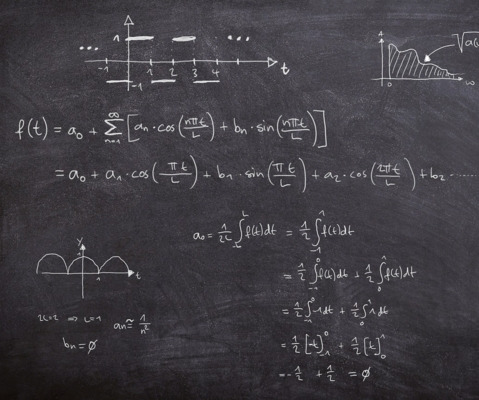 ... 1 ...
-1 1 2 3 4 t
-1
A √a(
0 ω
f(t) = a₀ + ∑ₙ₌₁^∞ [aₙ·cos(nπt/L) + bₙ·sin(nπt/L)]
= a₀ + a₁·cos(πt/L) + b₁·sin(πt/L) + a₂·cos(2πt/L) + b₂.....
a₀ = 1/2L ∫₋L^L f(t)dt = 1/2 ∫₋₁^1 f(t)dt
= 1/2 ∫₋₁^0 f(t)dt + 1/2 ∫₀^1 f(t)dt
= 1/2 ∫₋₁^0 -1dt + 1/2 ∫₀^1 1dt
= 1/2 [-t]₋₁^0 + 1/2 [t]₀^1
= -1/2 + 1/2 = ∅
y
1
t
2L=2 ⇒ L=1 aₙ≅ 1/n²
bₙ=∅